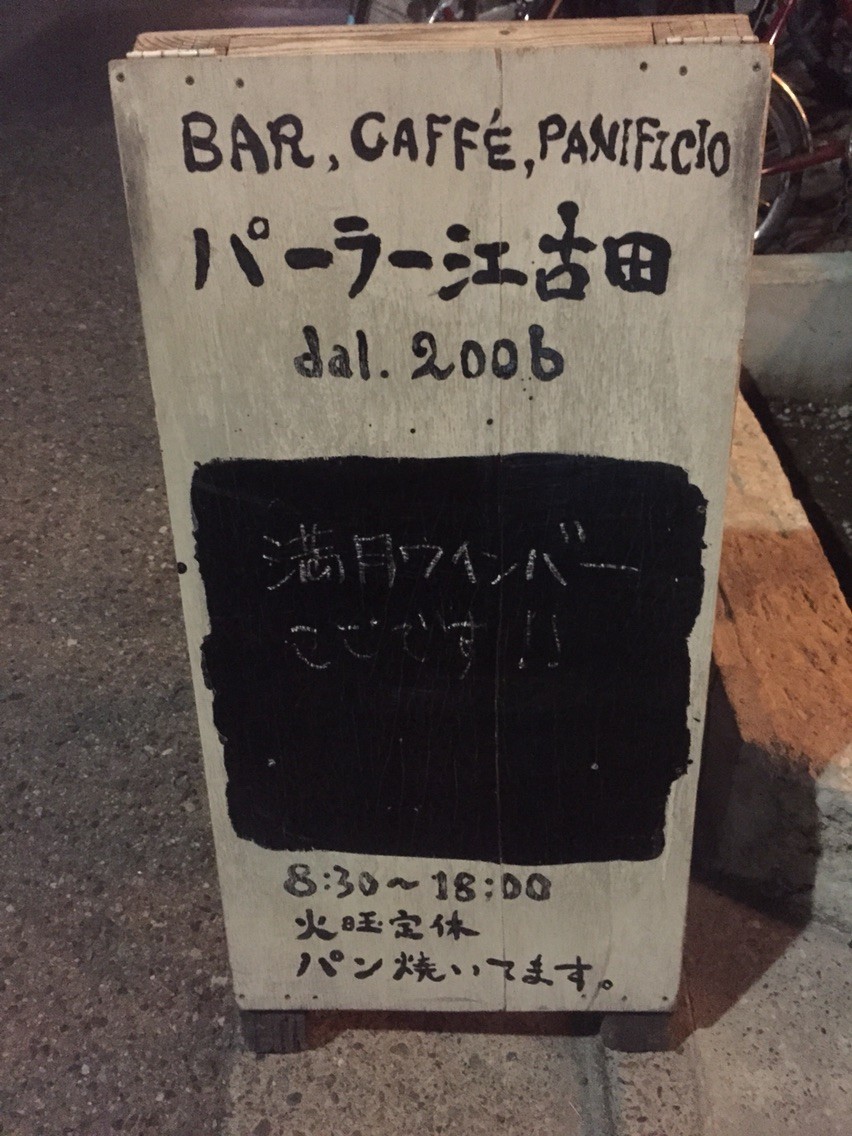 BAR, CAFFÉ, PANIFICIO
パーラー江古田
dal. 2006
満月ワインバー
ここです!!
8:30~18:00
火旺定休
パン焼いてます。